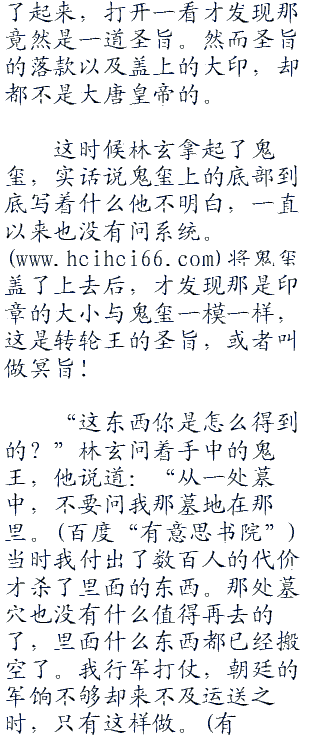 了起来，打开一看才发现那
竟然是一道圣旨。然而圣旨
的落款以及盖上的大印，却
都不是大唐皇帝的。
这时候林玄拿起了鬼
玺，实话说鬼玺上的底部到
底写着什么他不明白，一直
以来也没有问系统。
(www.hcihci66.com)将鬼玺
盖了上去后，才发现那是印
章的大小与鬼玺一模一样，
这是转轮王的圣旨，或者叫
做冥旨！
“这东西你是怎么得到
的？”林玄问着手中的鬼
王，他说道：“从一处墓
中，不要问我那墓地在那
里。(百度“有意思书院”)
当时我付出了数百人的代价
才杀了里面的东西。那处墓
穴也没有什么值得再去的
了，里面什么东西都已经搬
空了。我行军打仗，朝廷的
军饷不够却来不及运送之
时，只有这样做。(有